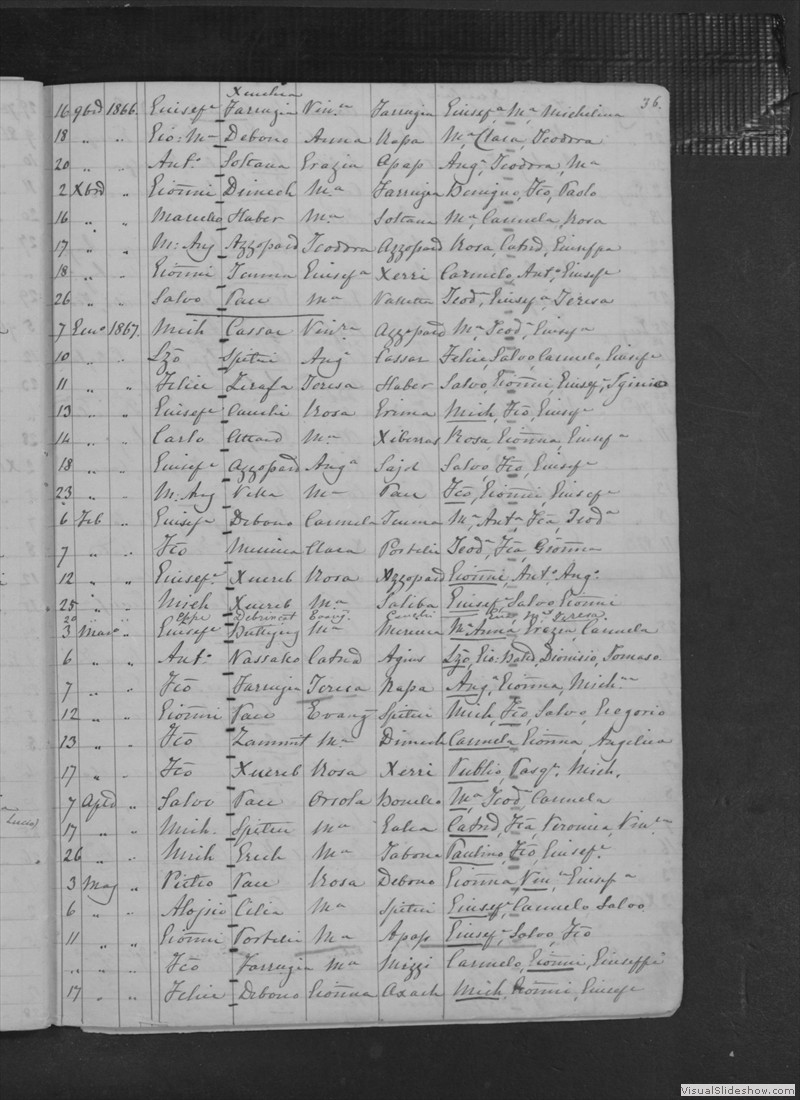 36.
Xuehia
16 9brd 1866. Giusefe Farrugia Vinza Farrugia Giusefa, Ma Michelina
18 " " Gio: Ma Debono Anna Rapa Ma Clara, Teodora
20 " " Anto Soltana Grazia Apap Anga Teodora, Ma
2 Xbrd " Gioñni Dimech Ma Farrugia Benigno, Fco, Paolo
16 " " Haber Ma Soltana Ma Carmela, Rosa
17 " " M: Ang Azzopard Teodora Azzopard Rosa, Catnd, Giuseppa
18 " " Gioñni Tomma Giusefa Xerri Carmelo, Anto, Giusefe
26 " " Salvo Pace Ma Teod, Giusefa, Teresa
7 Geno 1867. Mich Cassar Vinza Azzopard Ma Teod, Giusefa
10 " " Lzo Spiteri Ang Cassar Felice, Salvo, Carmelo, Giusefe
11 " " Felice Zerafa Teresa Haber Salvo, Gioñni, Giusefe, Iginio
13 " " Giusefe Rosa Grima Mich, Fco, Giusefe
14 " " Carlo Attard Ma Xiberras Rosa, Gioñna, Giusefa
18 " " Giusefe Azzopard Anga Sajd Salvo, Fco, Giusefe
23 " " M: Ang Vella Ma Pace Fco, Gioñni, Giusefe
6 Feb " Giusefe Debono Carmela Tomma Ma Anta Fca, Teoda
7 " " Fco Clara Portelli Teod, Fca Gioñna
12 " " Giusefe Xuereb Rosa Azzopard Gioñni, Anto. Ango.
25 " " Mich Xuereb Ma Saliba Giusefe, Salvo, Gioñni
20 Gppe Debrincat Evang. Ma Teresa
3 Marzo " Giusefe Buttigieg Ma Ma Anna, Grazia Carmela
6 " " Anto Vassallo Catnd Agius Lzo, Gio: Batd, Dionisio, Tomaso.
7 " " Fco Farrugia Teresa Rapa Anga, Gioñna, Michna
12 " " Gioñni Pace Evang Spiteri Mich, Fco, Salvo, Gregorio
13 " " Fco Zammit Ma Dimech Carmela, Gioñna, Angelica
17 " " Fco Xuereb Rosa Xerri Publio, Pasqe, Mich.
7 Aple " Salvo Pace Orsola Bonello Ma Teod, Carmela
Lucio)
17 " " Mich. Spiteri Ma Galea Catnd, Fca, Veronica, Vinza
26 " " Mich Grech Ma Tabone Paulino, Fco, Giusefe.
3 Mag " Pietro Pace Rosa Debono Gioñna, Vinza Giusefa
6 " " Alojsio Cilia Ma Spiteri Giusefe, Carmelo, Salvo
11 " " Gioñni Portelli Ma Apap Giusefe, Salvo, Fco
" " " Fco Farrugia Ma Mizzi Carmelo, Gioñni, Giuseppe
17 " " Felice Debono Gioñna Axach Mich, Gioñni, Giusefe
VisualSlideshow.com